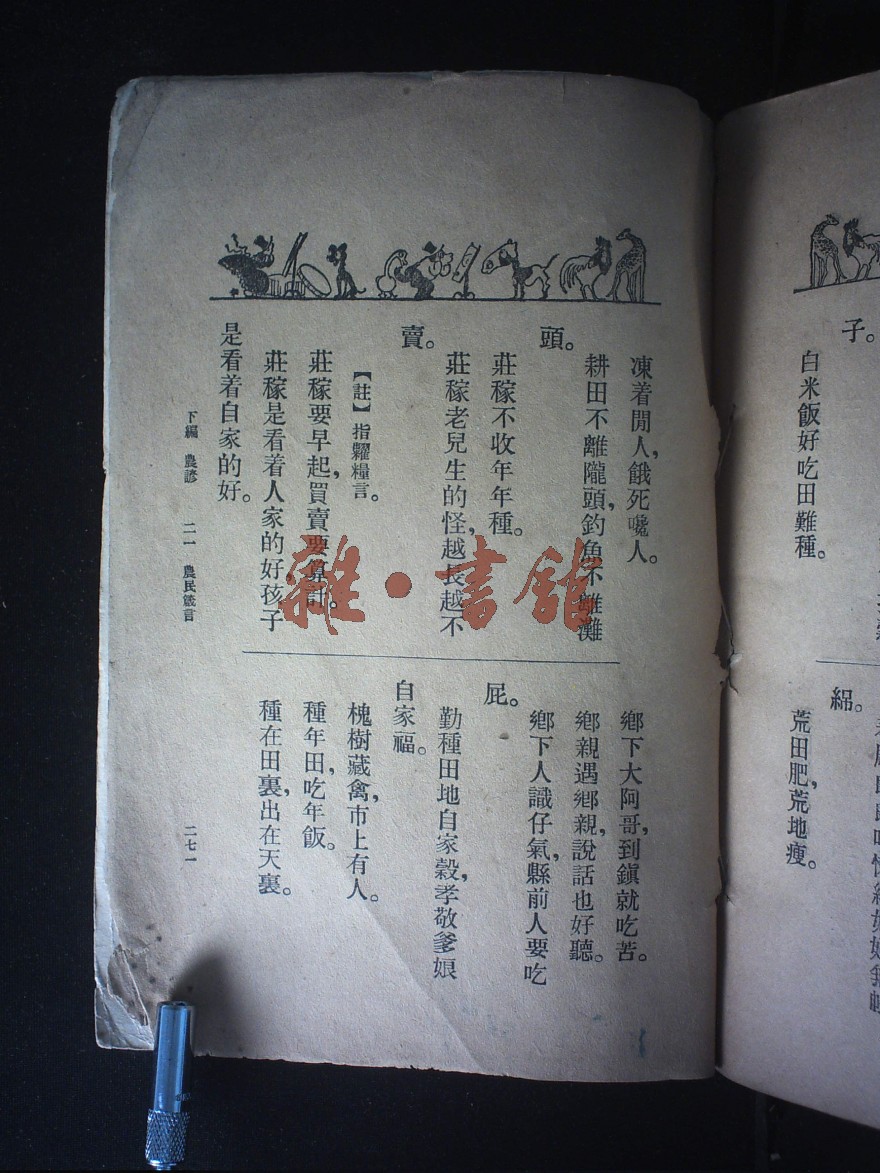 子。
白米飯好吃田難種。
荒田肥,荒地瘦。
凍着閒人,餓死嚵人。
耕田不離隴頭,釣魚不離灘
頭。
莊稼不收年年種。
莊稼老兒生的怪,越長越不
賣。
【註】指糶糧言。
莊稼要早起,買賣要算計。
莊稼是看着人家的好,孩子
是看着自家的好。
鄉下大阿哥,到鎭就吃苦。
鄉親遇鄉親,說話也好聽。
鄉下人識仔氣,縣前人要吃
屁。
勤種田地自家穀,孝敬爹娘
自家福。
槐樹藏禽,市上有人。
種年田,吃年飯。
種在田裏,出在天裏。
下編 農諺 二一 農民箴言 二七一
雜·書館